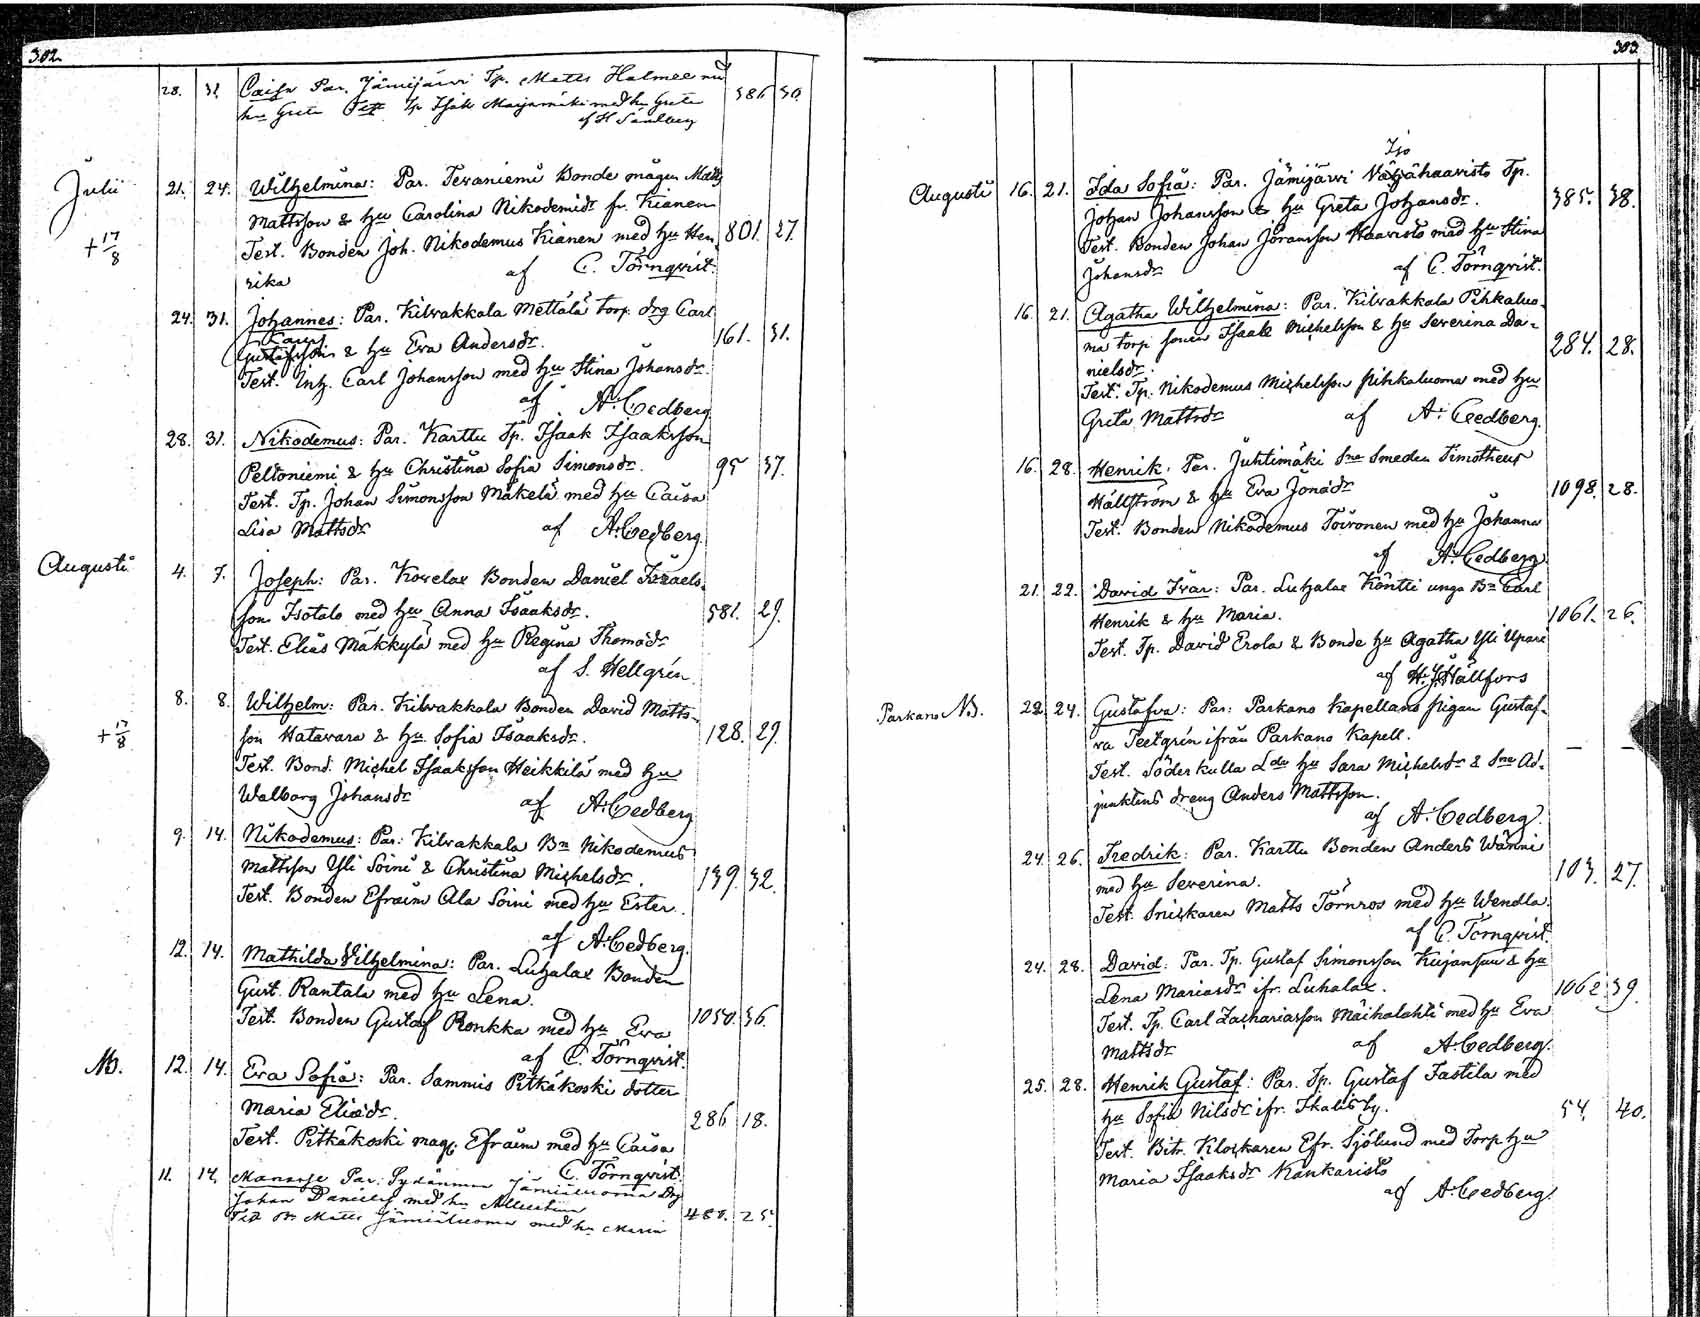 302.
28. 31. Caisa Par. Jämijärvi Tp. Matts Halmee med
hu Greta Test Tp Isak Marjamäki med hu Greta 386 30.
af H Sandberg
Julii 21. 24. Wilhelmina: Par. Teraniemi Bonde mågen Matts
Mattsson & hu Carolina Nikodemidr fr. Kianen
+ 17/8 Test. Bonden Joh. Nikodemus Kianen med hu Hen 801. 27.
rika af C. Törnqvist.
24. 31. Johannes: Par. Kilvakkala Mettälä torp. drg Carl
Gustafsson & hu Eva Andersdr. 161. 31.
Test. Inh. Carl Johansson med hu Stina Johansdr
af A. Cedberg
28. 31. Nikodemus: Par. Karttu Tp. Isaak Isaaksson
Peltoniemi & hu Christina Sofia Simonsdr. 95 37.
Test. Tp. Johan Simonsson Mäkelä med hu Caisa
Lisa Mattsdr af A. Cedberg.
Augusti 4. 7. Joseph: Par. Kovelax Bonden Daniel Israels-
son Isotalo med hu Anna Isaaksdr. 581. 29.
Test. Elias Mäkkylä med hu Regina Thomadr
af S. Hellgrén
8. 8. Wilhelm: Par. Kilvakkala Bonden David Matts-
+ 17/8 son Hatavara & hu Sofia Isaaksdr. 128. 29.
Test. Bond. Michel Isaaksson Heikkilä med hu
Walborg Johansdr af A. Cedberg
9. 14. Nikodemus: Par: Kilvakkala Bn Nikodemus
Mattsson Yli Soini & Christina Michelsdr. 139. 32.
Test. Bonden Efraim Ala Soini med hu Ester.
af A. Cedberg.
12. 14. Mathilda Wilhelmina: Par. Luhalax Bonden
Gust. Rantala med hu Lena.
Test. Bonden Gustaf Ronkka med hu Eva 1050. 36.
af C. Törnqvist.
NB. 12. 14. Eva Sofia: Par. Sammis Pitkäkoski dotter
Maria Eliædr. 286 18.
Test. Pitkäkoski mag. Efraim med hu Caisa
C. Törnqvist.
11. 14. Manasse Par: Sydänmaa Jämiäluoma Drg
Johan Daniels med hu Albertina
Test Bn Matts Jämiäluoma med hu Maria 480. 25.
303.
Iso
Augusti 16. 21. Ida Sofia: Par. Jämijärvi Vähähaavisto Tp.
Johan Johansson & hu Greta Johansdr. 385. 38.
Test. Bonden Johan Jöransson Haavisto med hu Stina
Johansdr af C. Törnqvist.
16. 21. Agatha Wilhelmina: Par. Kilvakkala Pihkaluo-
ma torp sonen Isaak Michelsson & hu Severina Da-
nielsdr. 284. 28.
Test. Tp. Nikodemus Michelsson Pihkaluoma med hu
Greta Mattsdr af A. Cedberg.
16. 28. Henrik. Par. Juhtimäki Sne Smeden Timotheus
Hällström & hu Eva Jonædr 1098. 28.
Test. Bonden Nikodemus Toivonen med hu Johanna
af A. Cedberg
21. 22. David Ivar: Par. Luhalax Köntti unga Bn Carl
Henrik & hu Maria. 1061. 26.
Test. Tp. David Erola & Bonde hu Agatha Yli Upare
af H. J. Hällfors
Parkano NB. 22. 24. Gustafva: Par: Parkano Kapellans pigan Gustaf-
va Teetgrén ifrån Parkano Kapell. – –
Test. Söderkulla Ldu hu Sara Michelsdr & Sne Ad-
junktens dreng Anders Mattsson.
af A. Cedberg.
24. 26. Fredrik: Par. Karttu Bonden Anders Wänni
med hu Severina. 103. 27.
Test. Snickaren Matts Törnros med hu Wendla.
af C. Törnqvist.
24. 28. David: Par. Tp. Gustaf Simonsson Kujansuu & hu
Lena Mariasdr ifr. Luhalax. 1062 39.
Test. Tp. Carl Zachariasson Maihalahti med hu Eva
Mattsdr af A. Cedberg.
25. 28. Henrik Gustaf: Par. Tp. Gustaf Fastila med
hu Sofia Nilsdr ifr. Ikalis by. 54. 40.
Test. Bitr. Klockaren Efr. Sjölund med Torp hu
Maria Isaaksdr Kankaristo
af A. Cedberg.